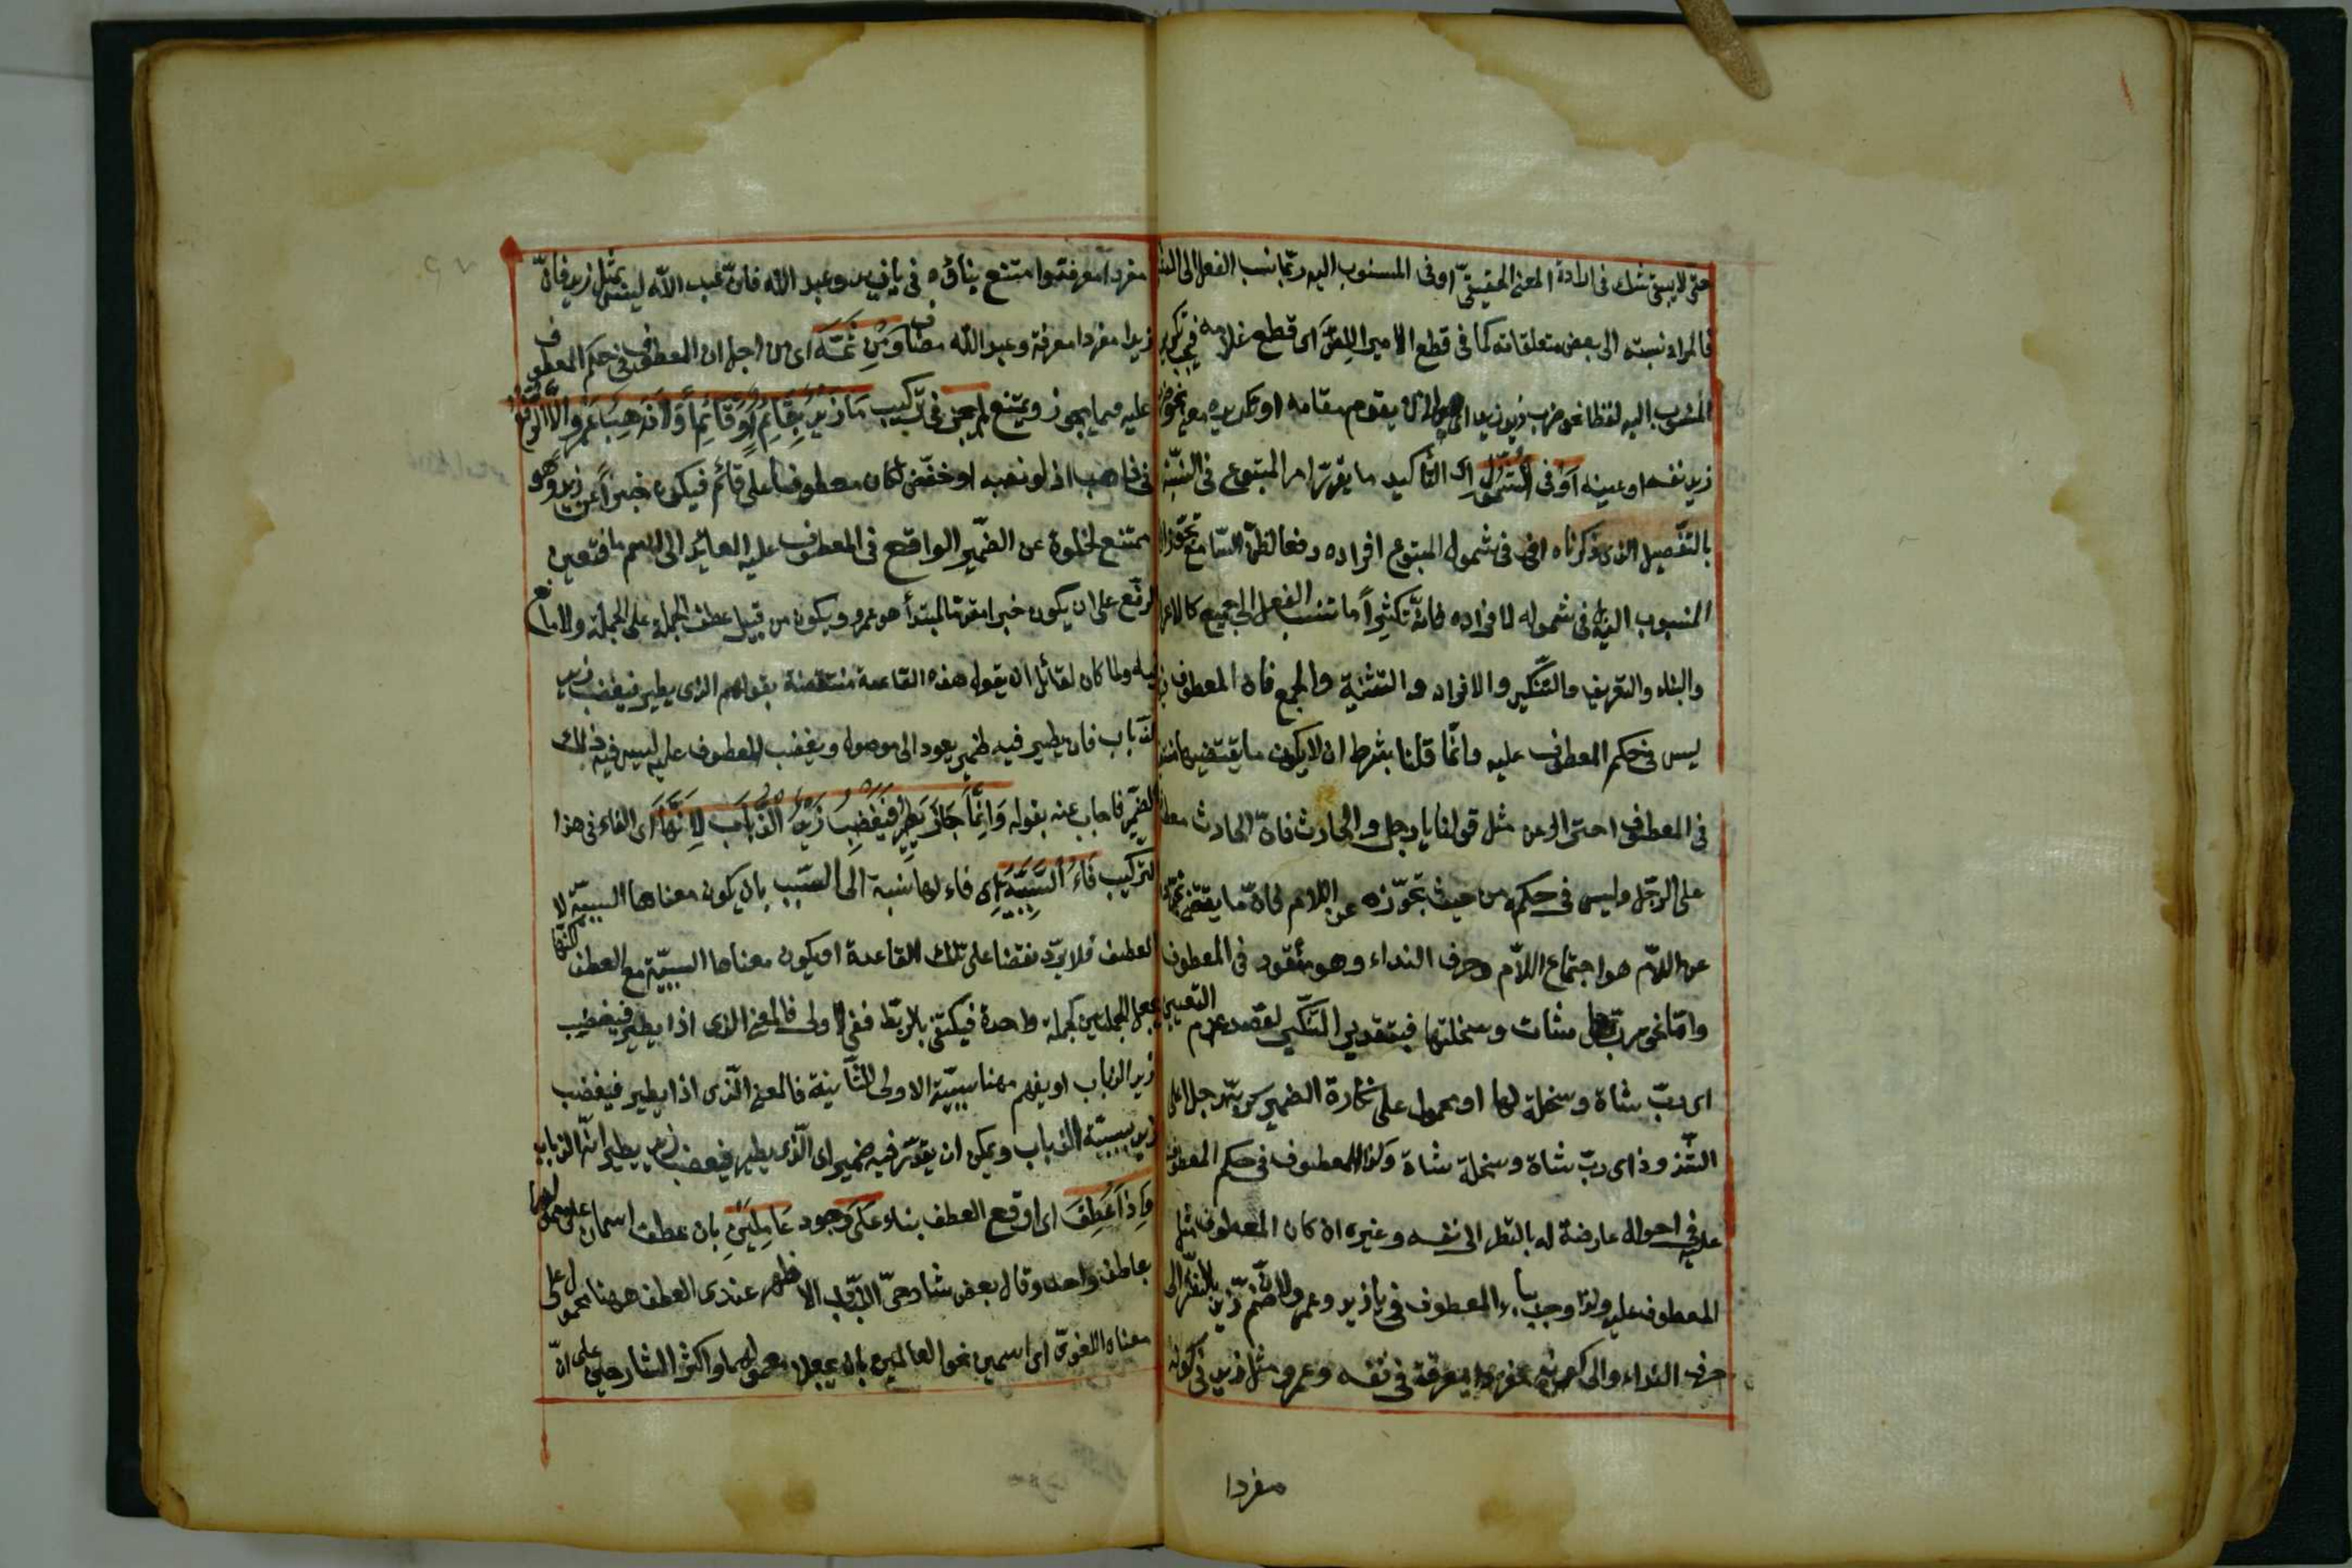 حتى لا يبقى شك فى ارادة المعنى الحقيقىّ او فى المنسوب اليه ربّما نسب الفعل الى الشئ
فالمراد نسبته الى بعض متعلقاته كما فى قطع الامير اللصّ اى قطع غلامه فيجب تكرير
المنسوب اليه لفظا نحو ضرب زيد زيد اى ضرب لا من يقوم مقامه او تكريره معنى نحو ضرب
زيد نفسه او عينه اَوْ فى الشّمُول اى التأكيد ما يقرّر امر المتبوع فى النسبة
بالتفصيل الذى ذكرناه او فى شمول المتبوع افراده دفعا لظنّ السّامع تجوّزا
المنسوب اليه فى شموله لافراده فانّه كثيراً ما تنسب الفعل الى جميع كالاعراب
والبناء والتعريف والتّنكير والافراد والتثنية والجمع فان المعطوف
ليس فى حكم المعطوف عليه وانّما قلنا بشرط ان لا يكون ما يقتضيها منتفيا
فى المعطوف احترازا عن مثل قولنا يا رجل والحارث فانّ الحارث معطوف
على الرّجل وليس فى حكمه من حيث تجوّزه عن اللام فانّ ما يقتضى
عن اللاّم هو اجتماع اللاّم وحرف النداء وهو مفقود فى المعطوف
وامّا نحو ربّ شاة وسخلتها فبتقدير التّنكير لقصد عدم التعيين
اى ربّ شاة وسخلة لها او محمول على نكارة الضمير كربّه رجلا على
الشّذوذ اى ربّ شاة وسخلة شاة وكذا المعطوف فى حكم المعطوف
عليه فى احوال عارضة له بالنظر الى نفسه وغيره ان كان المعطوف مثل
المعطوف عليه ولذا وجب بناء المعطوف فى يا زيد وعمرو لانّ ضمّ زيد بالنظر الى
حرف النداء والى كونه مفردا معرفة فى نفسه وعمرو مثل زيد فى كونه
مفردا
مفردا معرفة وامتنع بناؤه فى يا زيد وعبد الله فان عبد الله ليس مثل زيد فانّ
زيدا مفردا معرفة وعبد الله مضاف وَمِنْ ثَمَّهَ اى من اجل ان المعطوف فى حكم المعطوف
عليه فيما يجوز ويمتنع لم يجز فى تركيب مَا زَيْدٌ بِقَائِمٍ اَوْ قَائِمًا وَلَا ذَاهِبٌ عَمْرٌو اِلَّا الرَّفْعُ
فى ذاهب اذ لو نصب او خفض لكان معطوفا على قائم فيكون خبراً عن زيد وهو
ممتنع لخلوة عن الضّمير الواقع فى المعطوف عليه العايد الى اسم ما فتعين
الرفع على ان يكون خبرا مقدما لمبتدأ هو عمرو ويكون من قبيل عطف الجملة على الجملة ولا مانع
فيه ولما كان لقائل ان يقول هذه القاعدة منتقضة بقولهم الذى يطير فيغضب زيد
الذباب فان يطير فيه ضمير يعود الى موصول ويغضب المعطوف عليه ليس فيه ذلك
الضمير فاجاب عنه بقوله وَاِنَّمَا جَازَ يَطِيرُ فَيَغْضِبُ زَيْدٌ الذُّبَابَ لِاَنَّهَا اى الفاء فى هذا
التركيب فَاءُ السَّبَبِيَّةِ اى فاء لها نسبة الى السّبب بان يكون معناها السببيّة لا
العطف فلا يرد نقضا على تلك القاعدة او يكون معناها السببيّة مع العطف لكنها
يجعل الجملتين كجملة واحدة فيكتفى بالربط فى الاولى فالمعنى الذى اذا يطير فيغضب
زيد الذباب او يفهم منها سببيّة الاولى للثّانية فالمعنى الّذى اذا يطير فيغضب
زيد بسببيّة الذباب ويمكن ان يقدّر فيه ضمير اى الّذى يطير فيغضب زيد بطيرانه الذباب
وَاِذَا عُطِفَ اى اوقع العطف بناء عَلَى وجود عَامِلَيْنِ بان عطف اسمان على معمولهما
بعاطف واحد وقال بعض شارحىّ اللّباب الاظهر عندى العطف ههنا محمول على
معناه اللغوىّ اى اسمين نحو العاملين بان يجعل معمولهما واكثر الشارحين على انّ